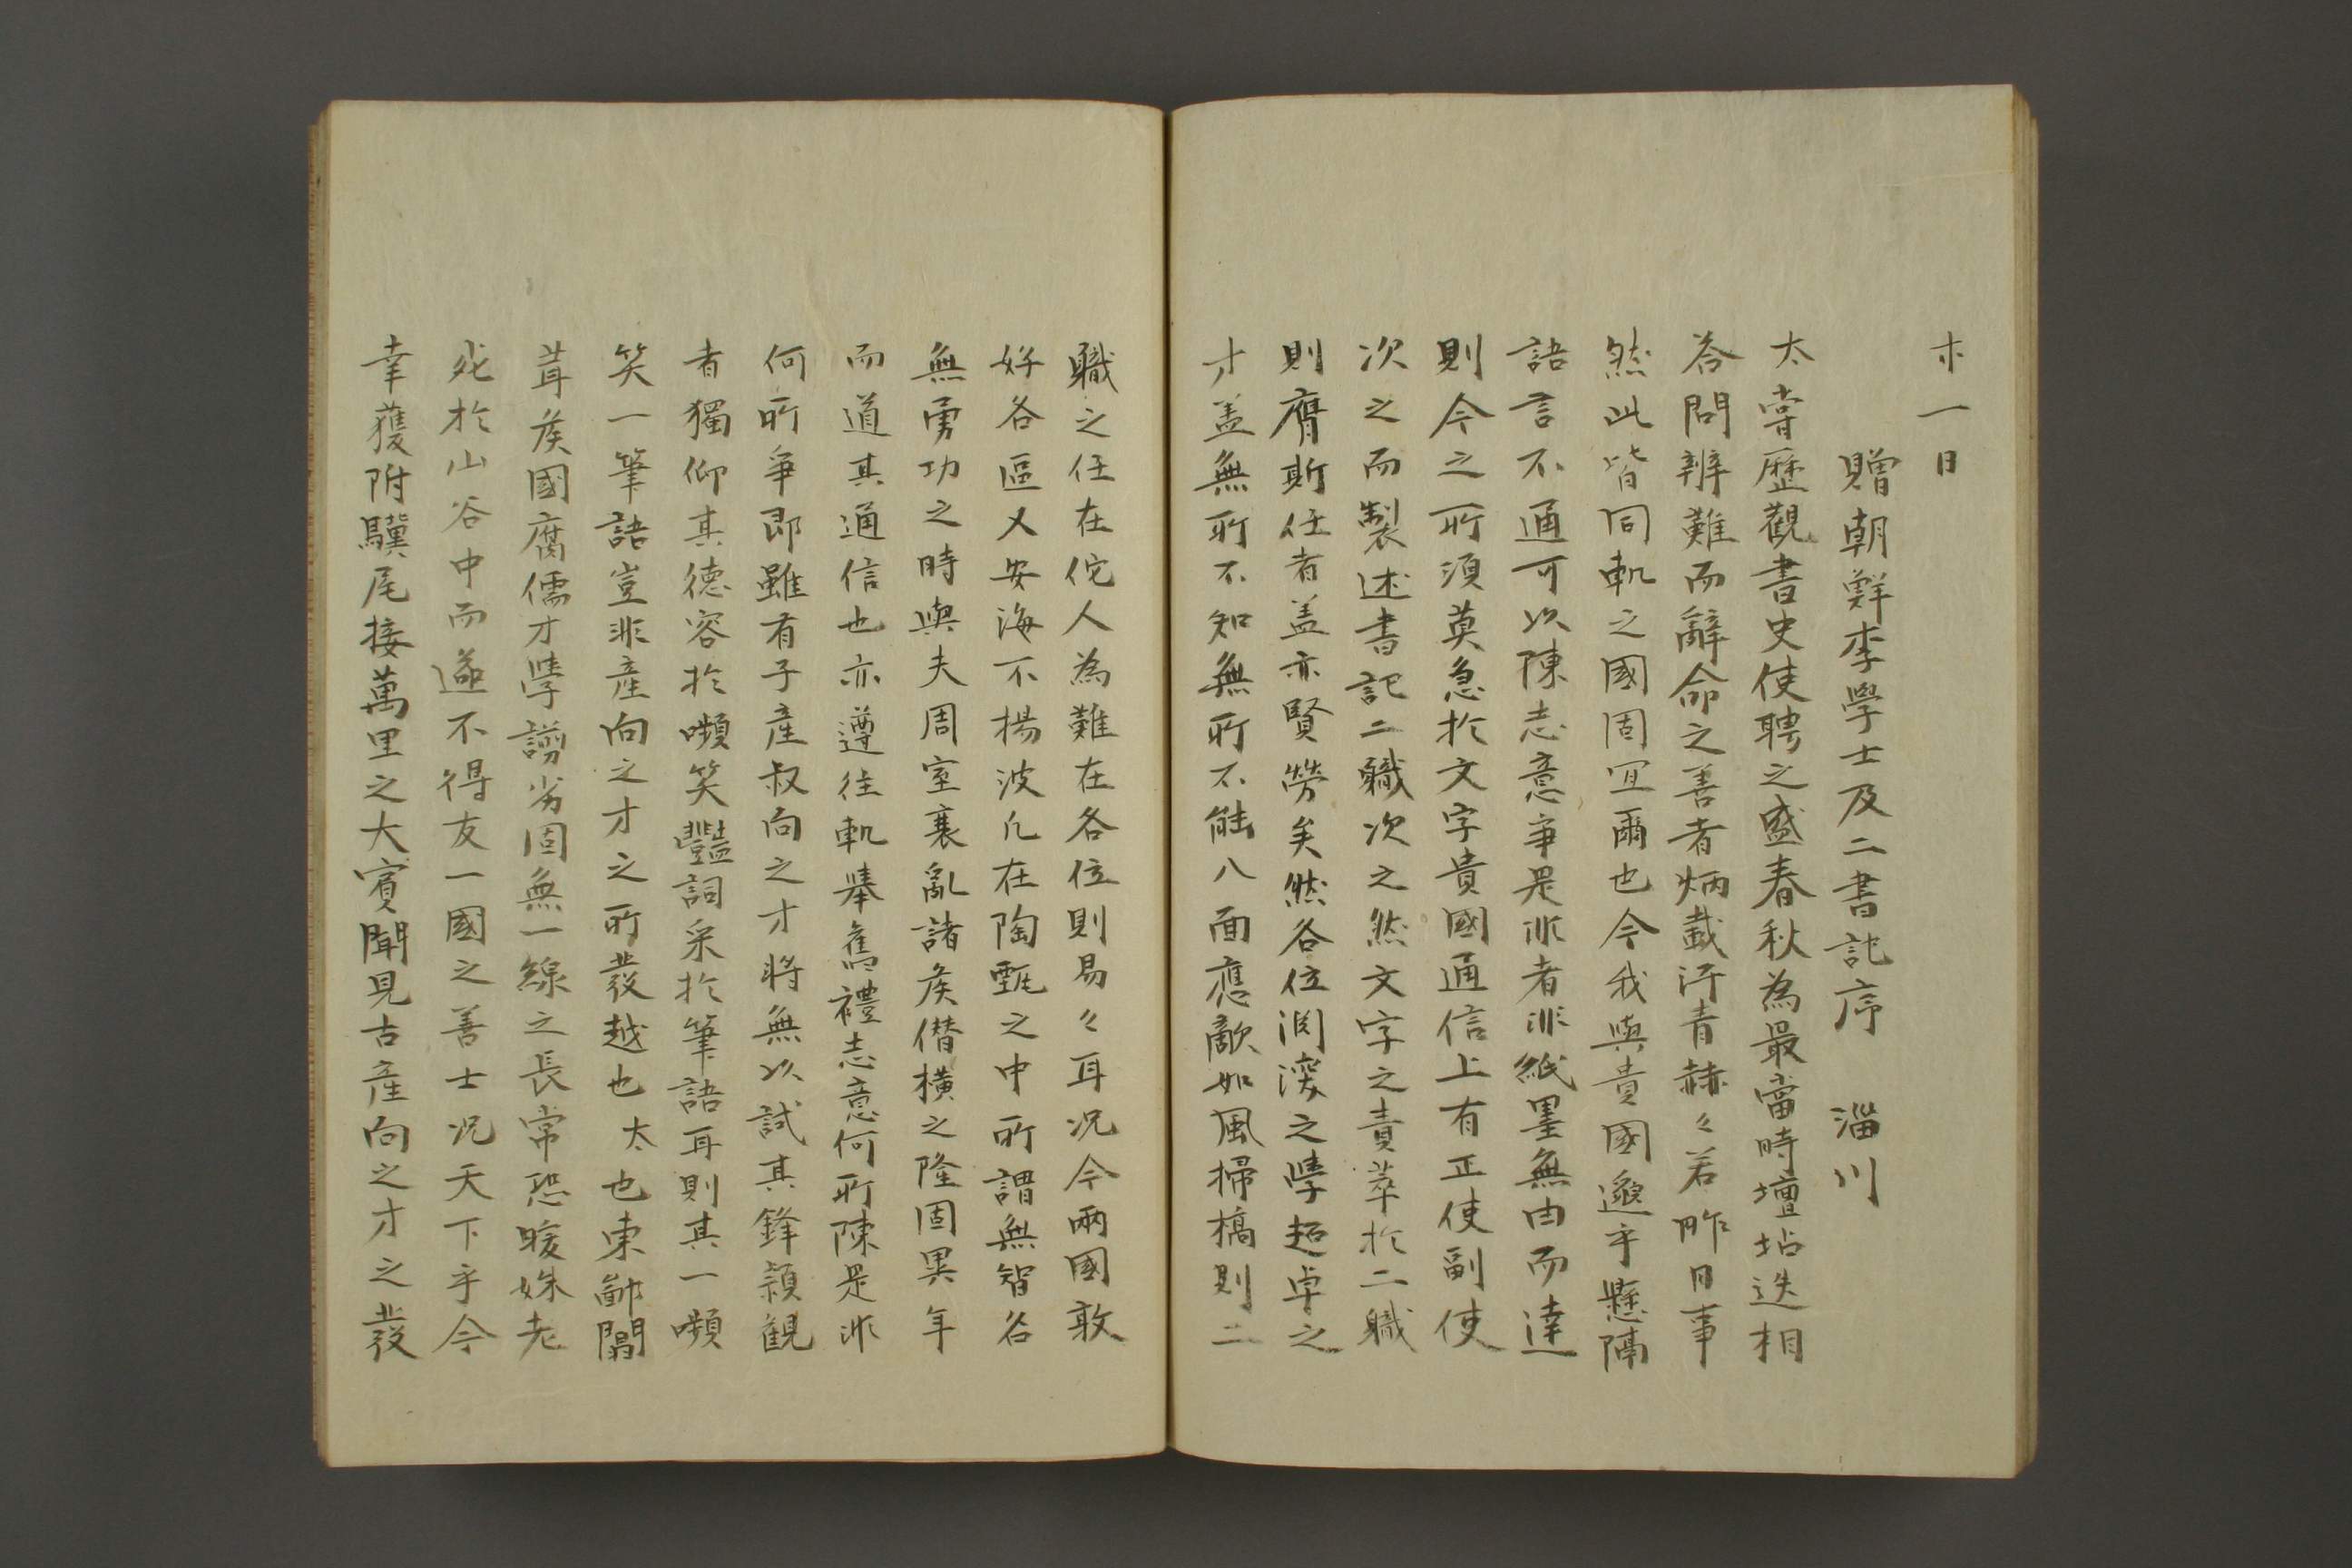 十一日
贈朝鮮李學士及二書記序　淄川
太甞歷觀書史使聘之盛春秋為最當時壇坫迭相
荅問辨難而辭命之善者炳載汗青赫々若昨日事
然此皆同軌之國固宜爾也今我與貴國邈乎懸隔
語言不通可以陳志意爭是非者非紙墨無由而達
則今之所須莫急於文字貴國通信上有正使副使
次之而製述書記二職次之然文字之責萃於二職
則膺斯任者盖亦賢勞矣然各位淵深之學超卓之
才盖無所不知無所不能八面應敵如風掃槁則二
職之任在佗人為難在各位則易々耳况今兩國敦
好各區乂安海不揚波凡在陶甄之中所謂無智名
無勇功之時與夫周室襄亂諸侯僭橫之隆固異年
而道其通信也亦遵往軌舉舊禮志意何所陳是非
何所爭即雖有子產叔向之才將無以試其鋒穎觀
者獨仰其德容於嚬笑豔詞采於筆語耳則其一嚬
笑一筆語豈非產向之才之所發越也太也東鄙闒
茸矦國腐儒才學謭劣固無一線之長常恐暖姝老
死於山谷中而遂不得友一國之善士况天下乎今
幸獲附驥尾接萬里之大賓聞見古產向之才之發